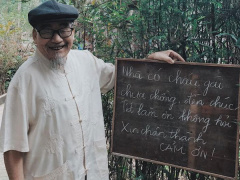 Nhà có hai gái
chưa chồng, đến chúc
Tết làm ơn không hỏi
Xin chân thành
CẢM ƠN!